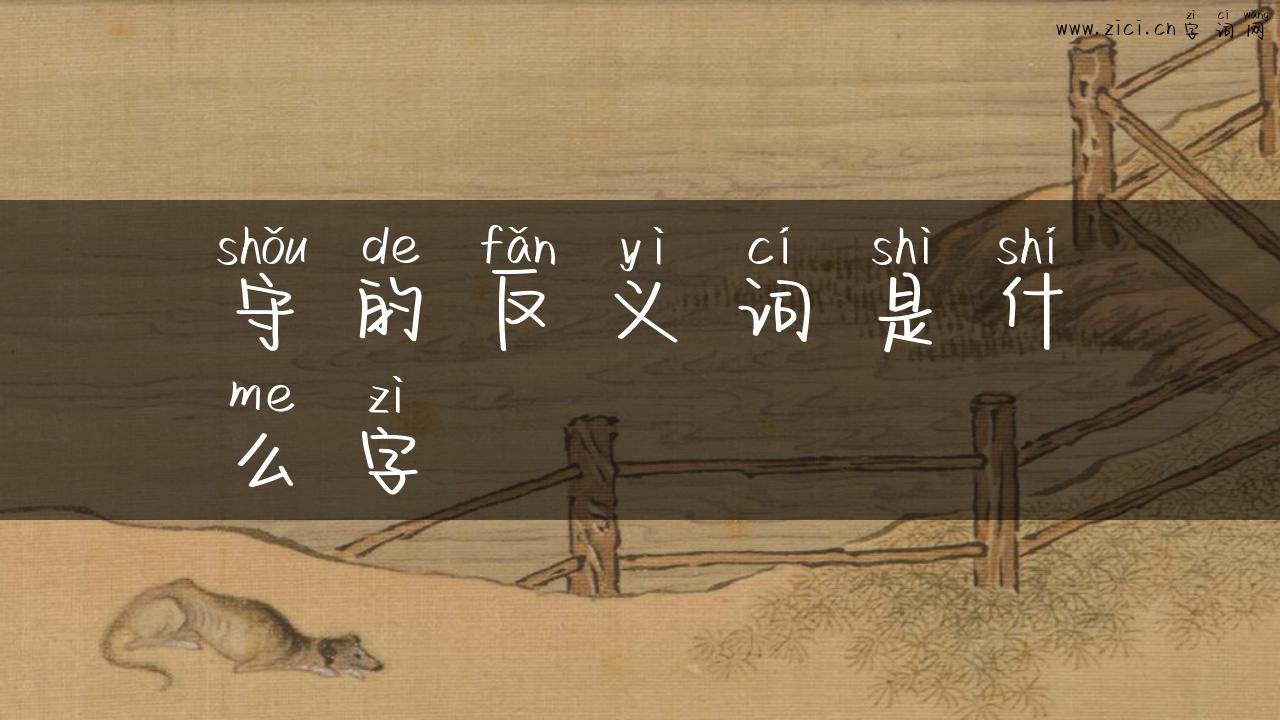 zi ci wang
www.zici.cn 字词网
shǒu de fǎn yì cí shì shí
守的反义词是什
me zì
么字